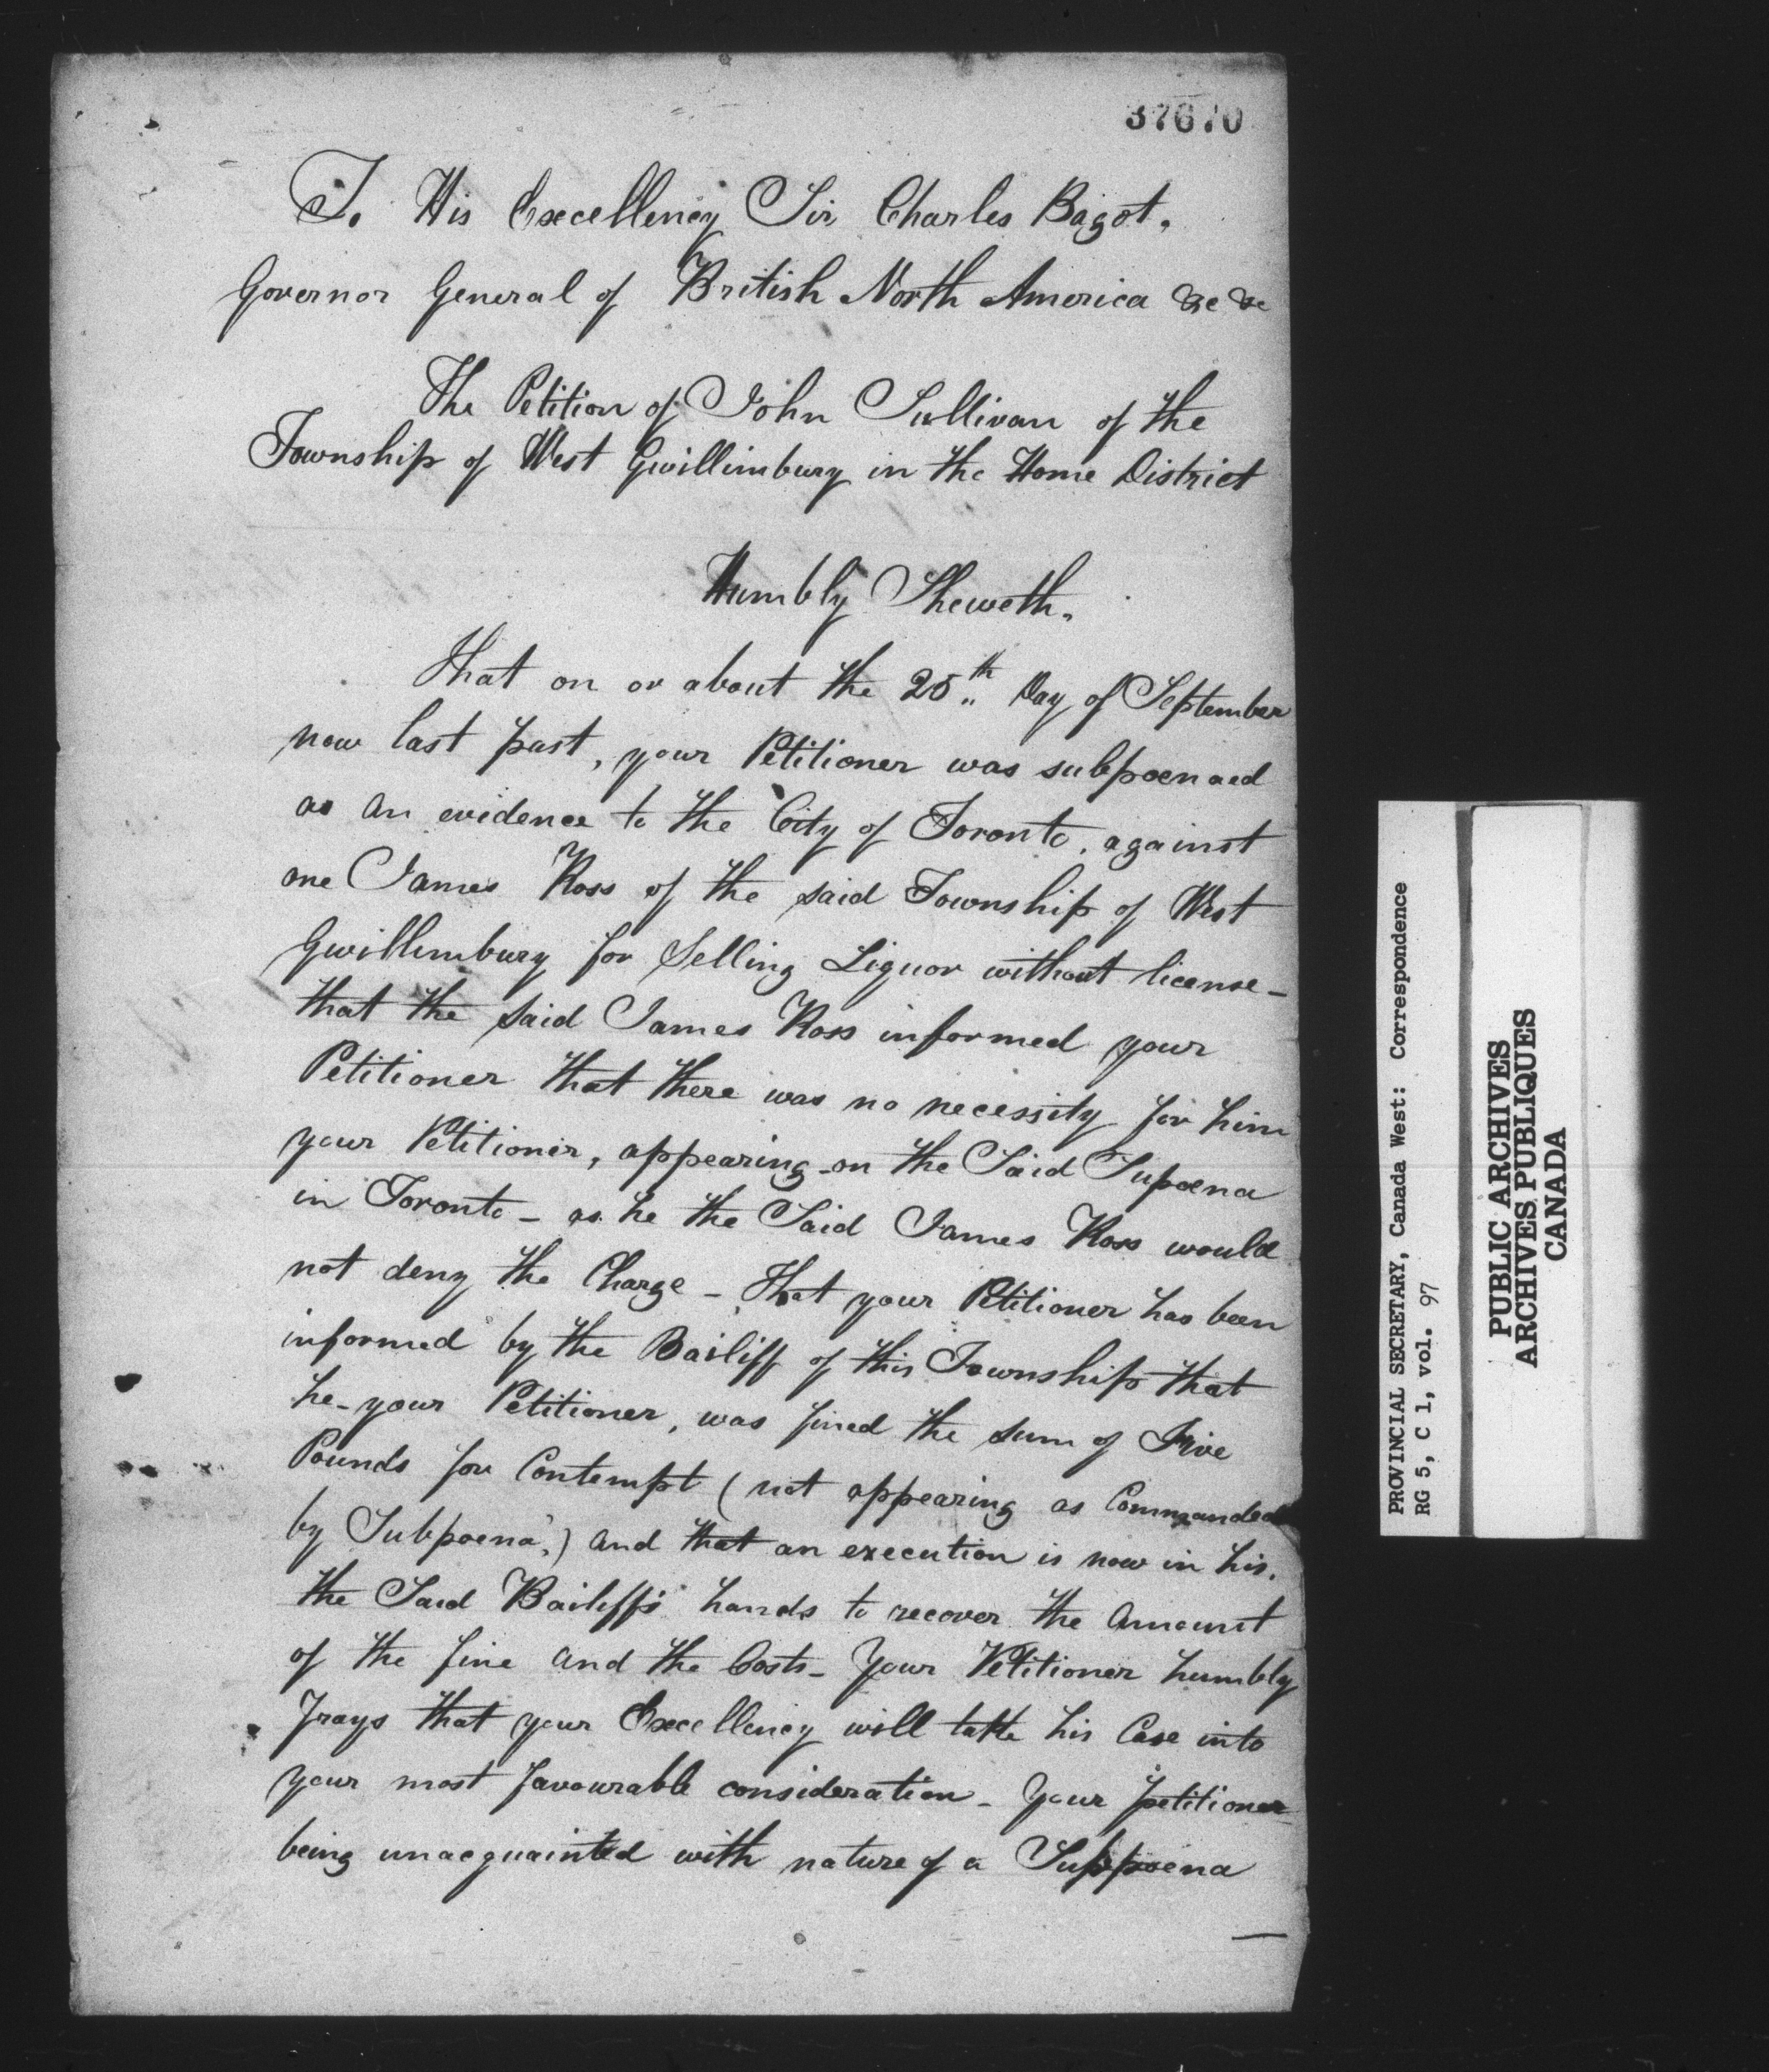 37670
To His Excellency Sir Charles Bagot,
Governor General of British North America &c &c
The Petition of John Sullivan of the
Township of West Gwillimbury in the Home District
Humbly Sheweth,
That on or about the 25th Day of September
now last past, your Petitioner was subpoenaed
as an evidence to the City of Toronto, against
one James Ross of the said Township of West
Gwillimbury for Selling Liquor without license-
that the said James Ross informed your
Petitioner that there was no necessity for him
your Petitioner, appearing on the Said Supoena
in Toronto - as he the Said James Ross would
not deny the Charge - That your Petitioner has been
informed by the Bailiff of this Township that
he- your Petitioner, was fined the sum of Five
Pounds for Contempt (not appearing as Commanded
by Subpoena,) and that an execution is now in his,
the Said Bailiff's hands to recover the Amount
of the fine and the Costs- Your Petitioner humbly
Prays that your Excellency will take his Case into
your most favourable consideration - Your petitioner
being unacquainted with nature of a Subpoena
PROVINCIAL SECRETARY, Canada West: Correspondence
RG 5, C 1, vol. 97
PUBLIC ARCHIVES
ARCHIVES PUBLIQUES
CANADA